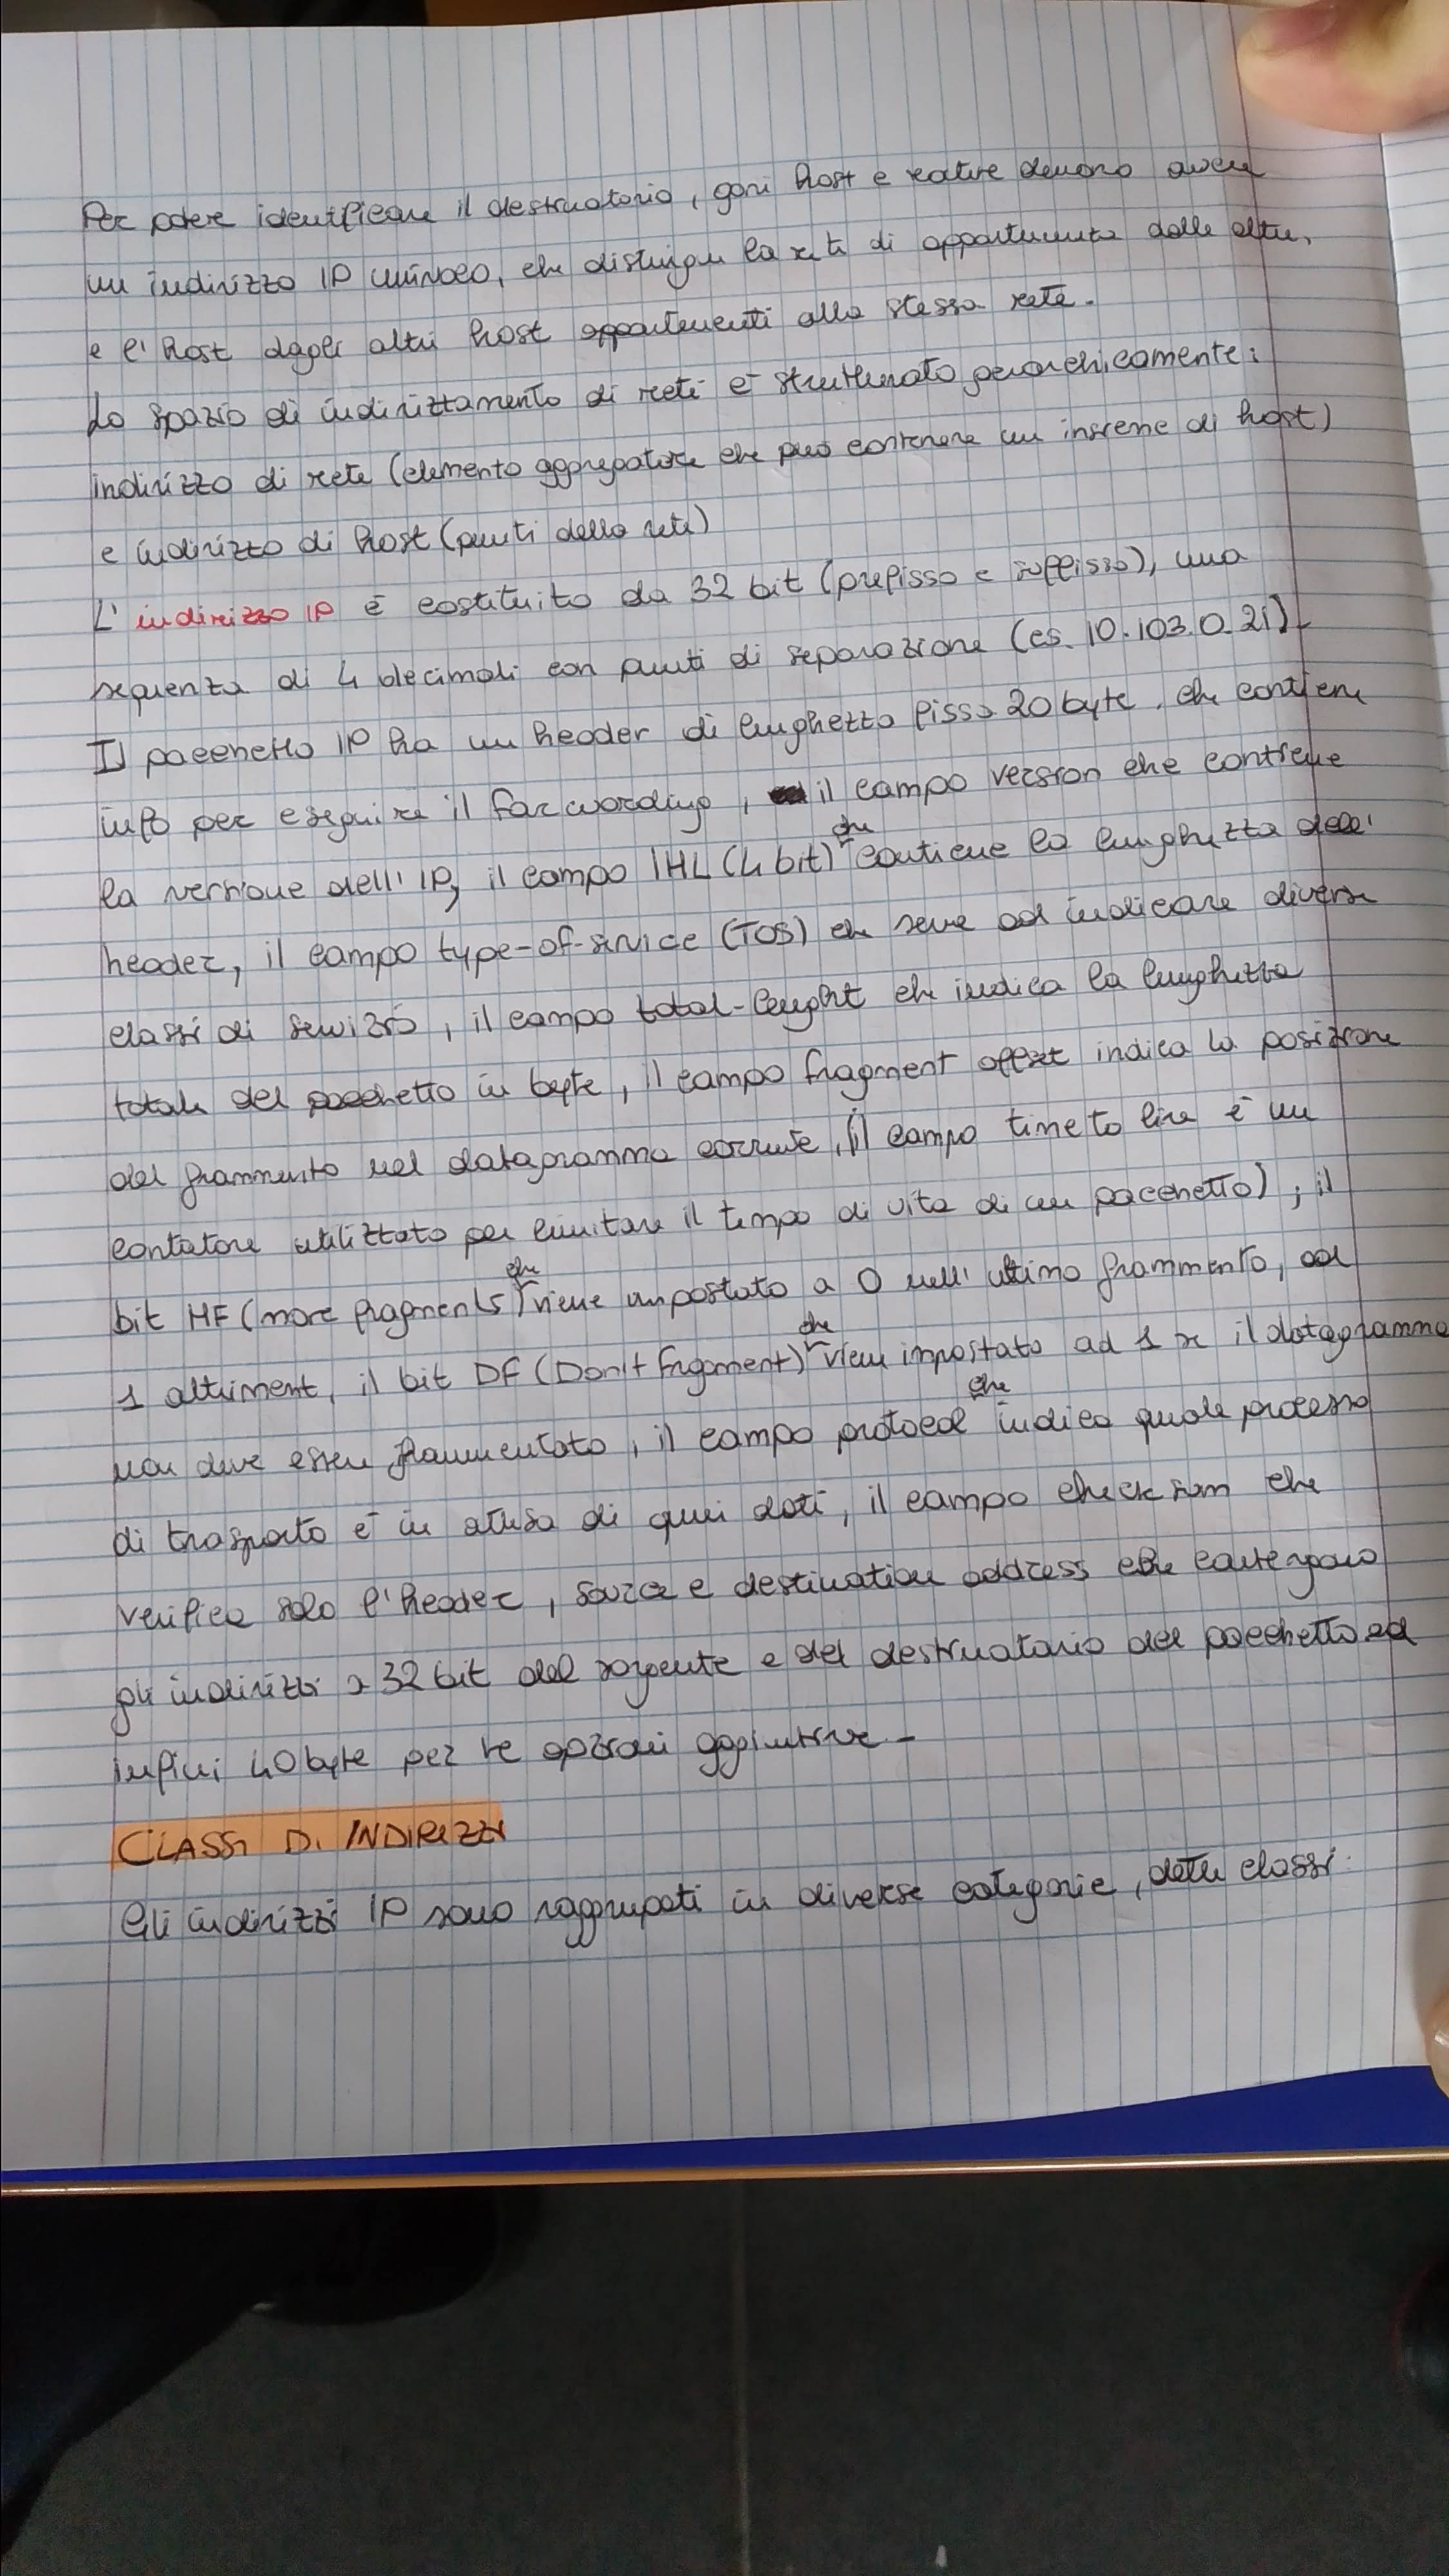 Per potere identificare il destinatario, ogni host e router devono avere
un indirizzo IP univoco, che distingue la rete di appartenenza dalle altre,
e l'host dagli altri host appartenenti alla stessa rete.
Lo spazio di indirizzamento di reti è strutturato gerarchicamente:
indirizzo di rete (elemento aggregatore che può contenere un insieme di host)
e indirizzo di host (punti della rete)
L'indirizzo IP è costituito da 32 bit (prefisso e suffisso), una
sequenza di 4 decimali con punti di separazione (es. 10.103.0.21).
Il pacchetto IP ha un header di lunghezza fissa 20 byte, che contiene
info per eseguire il forwarding, il campo version che contiene
la versione dell'IP, il campo IHL (4 bit) che contiene la lunghezza dell'
header, il campo type-of-service (TOS) che serve ad indicare diverse
classi di servizio, il campo total-lenght che indica la lunghezza
totale del pacchetto in byte, il campo fragment offset indica la posizione
del frammento nel datagramma corrente, (il campo time to live è un
contatore utilizzato per limitare il tempo di vita di un pacchetto); il
bit MF (more fragments) che viene impostato a 0 nell'ultimo frammento, ad
1 altriment, il bit DF (Don't fragment) che viene impostato ad 1 se il datagramma
non deve essere frammentato, il campo protocol che indica quale processo
di trasporto è in attesa di quei dati, il campo checksum che
verifica solo l'header, source e destination address che contengono
gli indirizzi a 32 bit del sorgente e del destinatario del pacchetto ed
infini 40 byte per le opzioni aggiuntive.
CLASSI DI INDIRIZZI
Gli indirizzi IP sono raggruppati in diverse categorie, dette classi.